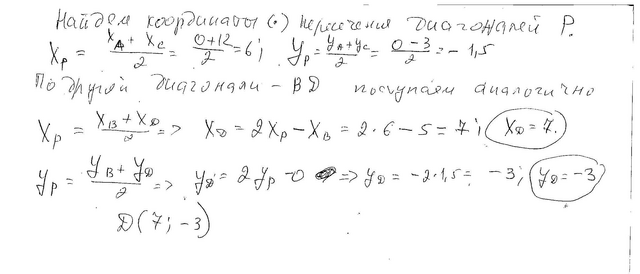 Найдем координаты (·) пересечения диагоналей P.
Xр = (X_A + X_C)/2 = (0+12)/2 = 6; Yр = (y_A + y_C)/2 = (0-3)/2 = -1,5
По другой диагонали - BD поступаем аналогично
Xр = (X_B + X_D)/2 => X_D = 2Xр - X_B = 2·6 - 5 = 7; X_D = 7.
Yр = (Y_B + Y_D)/2 => y_D = 2yр - 0 => y_D = -2·1,5 = -3; y_D = -3
D(7; -3)